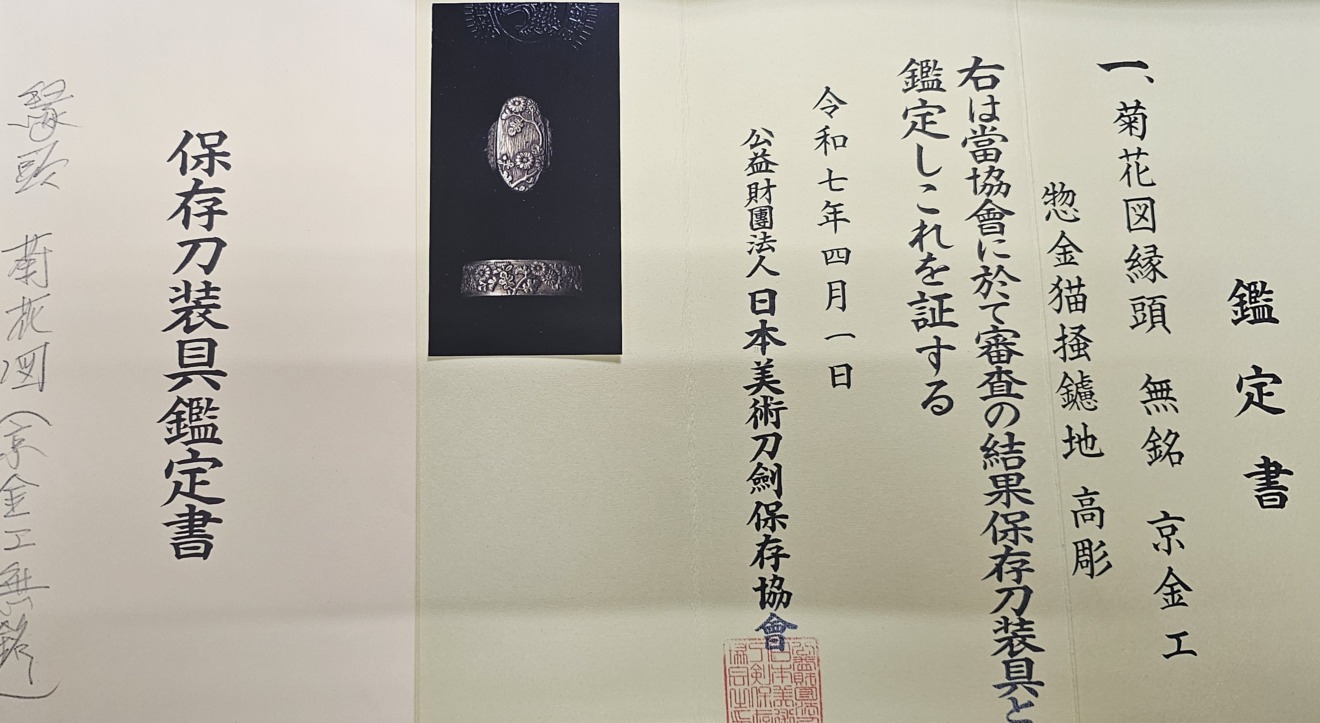 鑑定書
一、菊花図縁頭 無銘 京金工
惣金猫掻鑢地 高彫
右は當協會に於て審査の結果保存刀装具と
鑑定しこれを証する
令和七年四月一日
公益財團法人日本美術刀劍保存協會
保存刀装具鑑定書
縁頭 菊花図(京金工無銘)